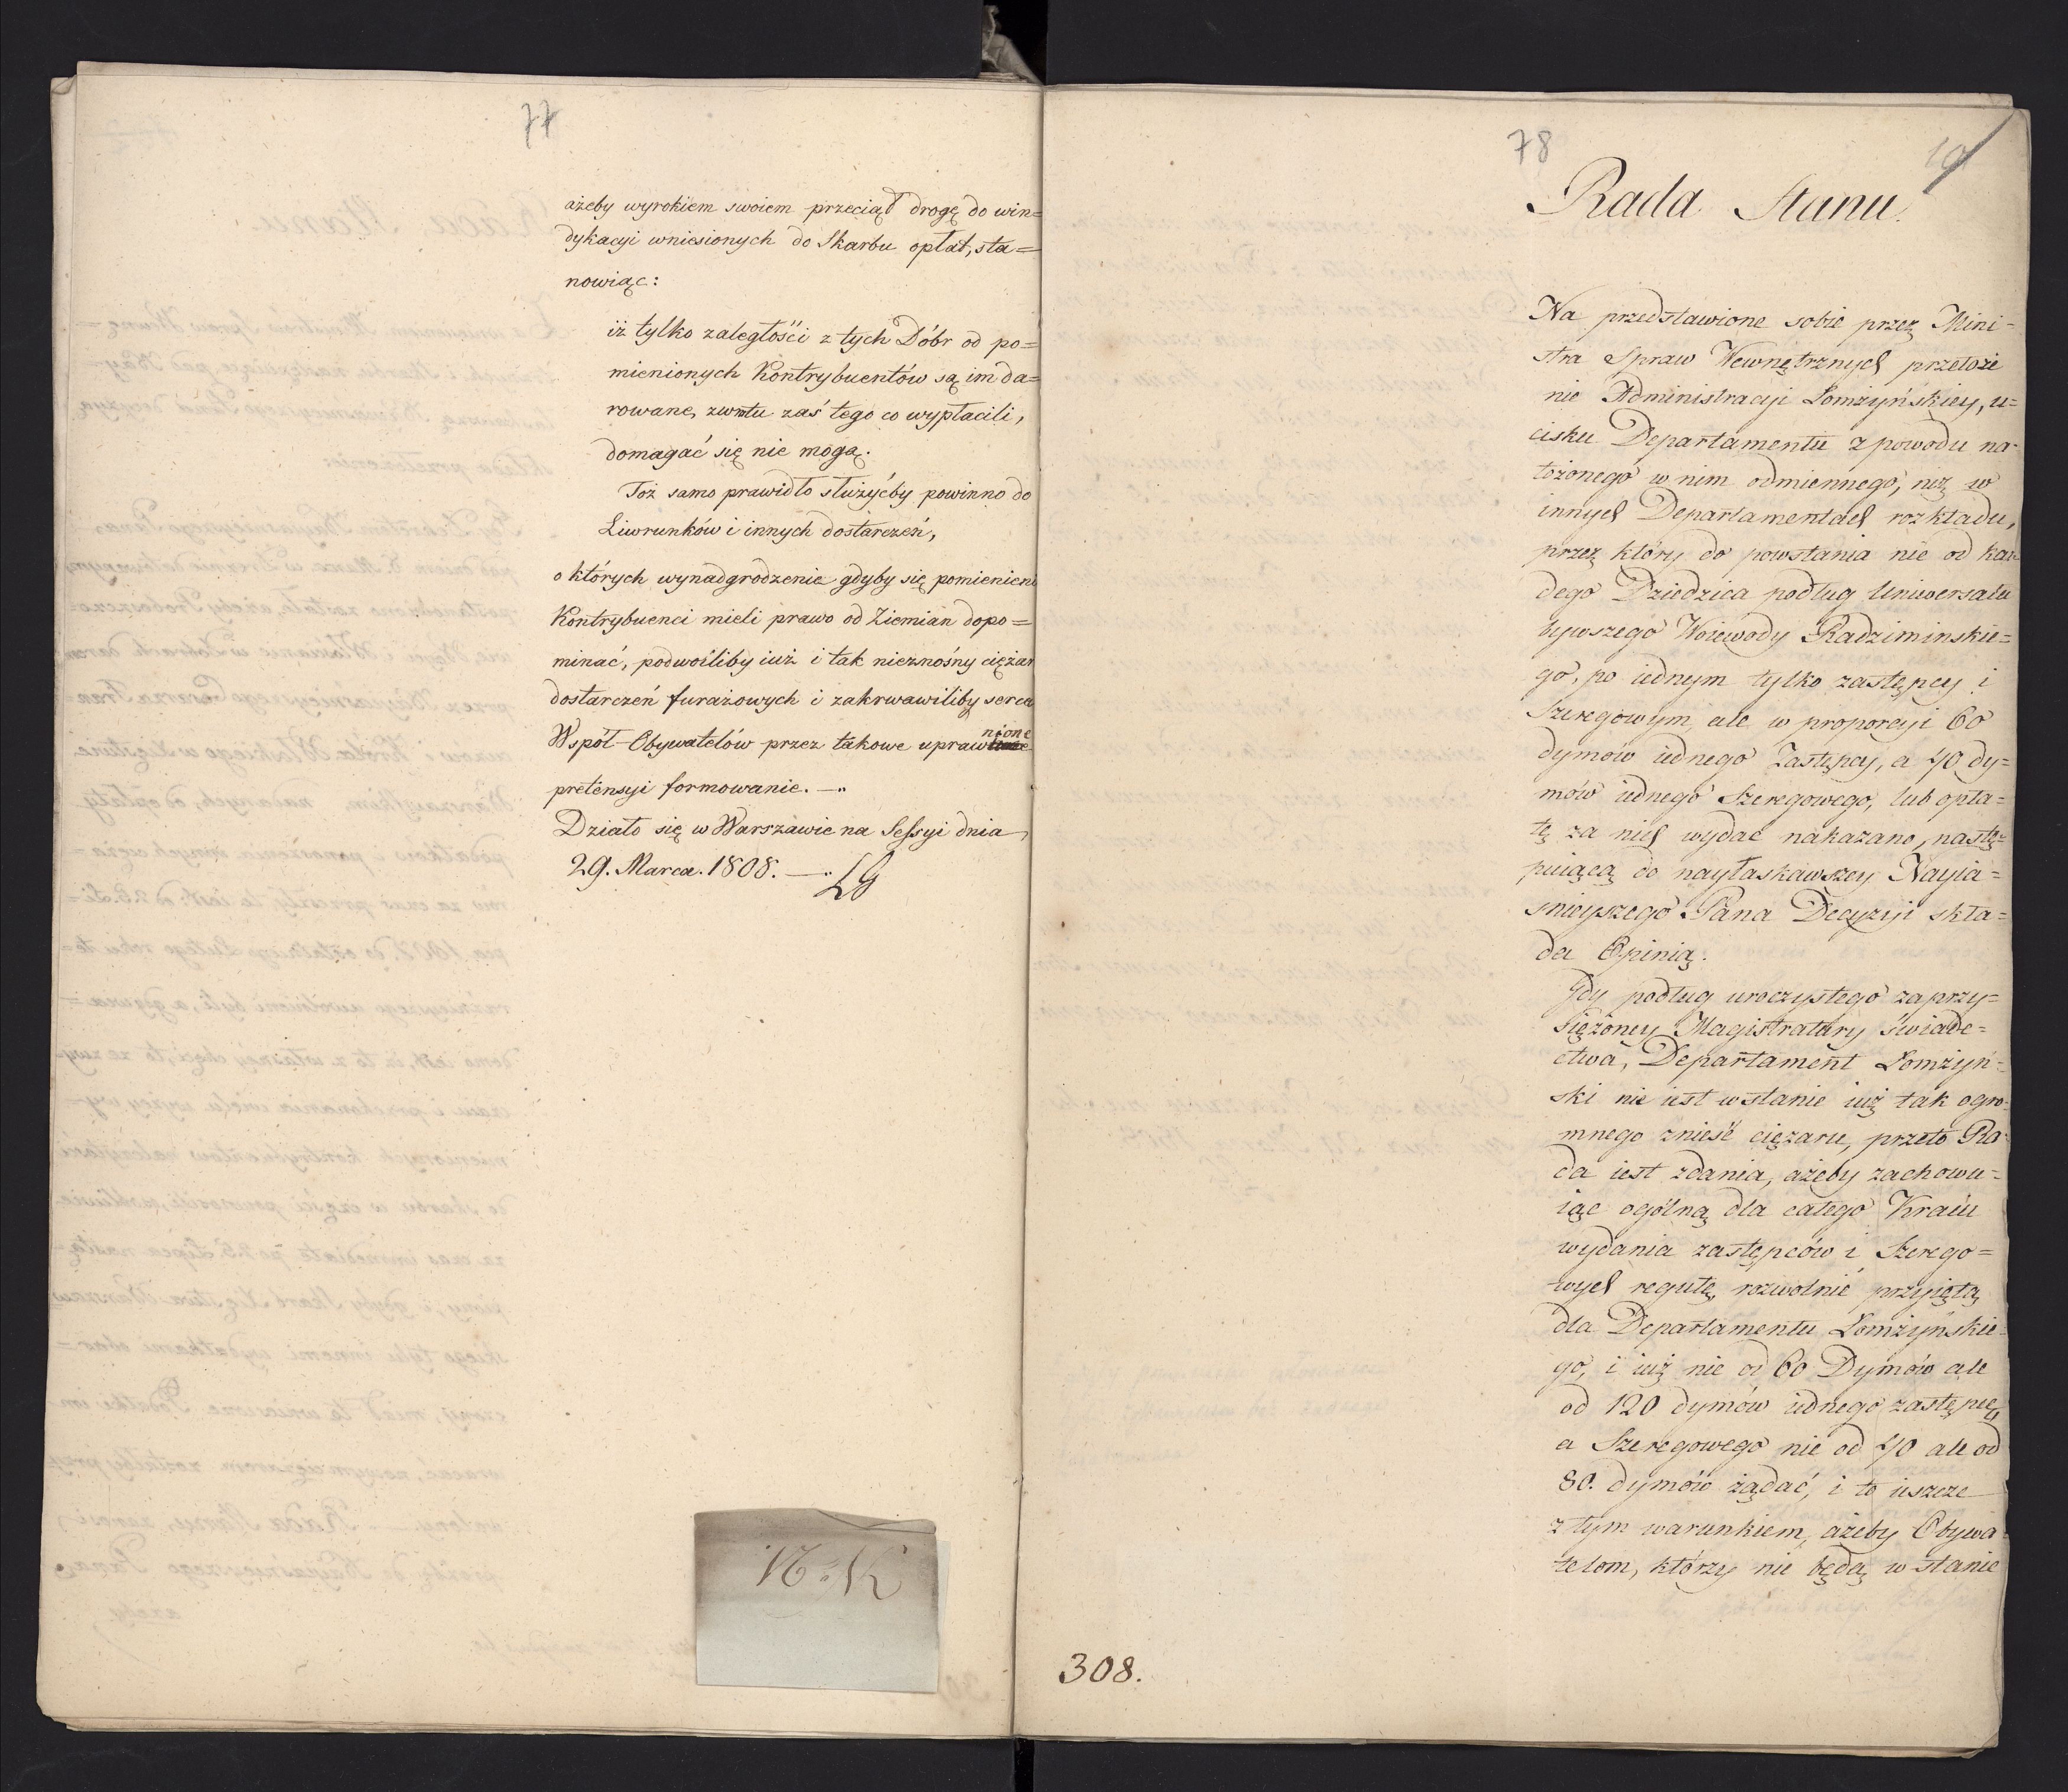 77
ażeby wyrokiem swoiem przeciął drogę do win=
dykacyi wniesionych do Skarbu opłat, sta=
nowiąc:
iż tylko zaległości z tych Dóbr od po=
mienionych Kontrybuentów są im da=
rowane, zwrotu zaś tego co wypłacili,
domagać się nie mogą.
Toż samo prawidło służyćby powinno do
Liwrunków i innych dostarczeń,
o których wynadgrodzenie gdyby się pomienieni
Kontrybuenci mieli prawo od Ziemian dopo=
minać, podwoiliby iuż i tak nieznośny ciężar
dostarczeń furażowych i zakrwawiliby serca
Współ-Obywatelów przez takowe uprawnione
pretensyi formowanie. —
Działo się w Warszawie na Sessyi dnia
29. Marca. 1808. — LG
78
Rada Stanu.
Na przedstawione sobie przez Mini=
stra Spraw Wewnętrznych przełoże
nie Administracyi Łomżyńskiey, u=
cisku Departamentu z powodu na=
łożonego w nim odmiennego, niż w
innych Departamentach rozkładu,
przez który do powstania nie od każ
dego Dziedzica podług Uniwersału
bywszego Woiewody Radziminskie=
go, po iednym tylko zastępcy i
Szeregowym ale w proporcyi 60
dymów iednego Zastępcy, a 40 dy=
mów iednego Szeregowego, lub opła=
tę za nich wydać nakazano, nastę=
puiącą do nayłaskawszey Nayia=
śnieyszego Pana Decyzyi skła=
da Opinią.
Gdy podług uroczystego zaprzy=
siężoney Magistratury świade=
ctwa, Departament Łomżyń=
ski nie iest w stanie iuż tak ogro=
mnego znieść ciężaru, przeto Ra=
da iest zdania, ażeby zachowu=
iąc ogólną dla całego Kraiu
wydania zastępców i Szerego=
wych regułę, rozwolnić przyiętą
dla Departamentu Łomżyńskie=
go, i iuż nie od 60 Dymów ale
od 120 dymów iednego zastępcę
a Szeregowego nie od 40 ale od
80. dymów żądać, i to ieszcze
z tym warunkiem, ażeby Obywa=
telom, którzy nie będą w stanie
308.